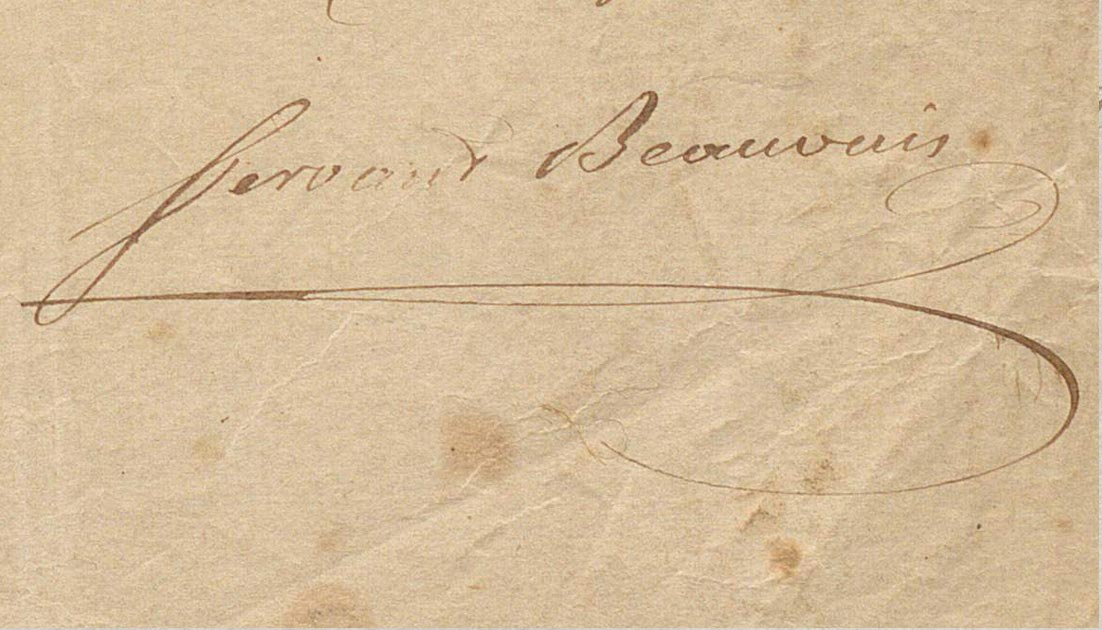 Servand Beauvais